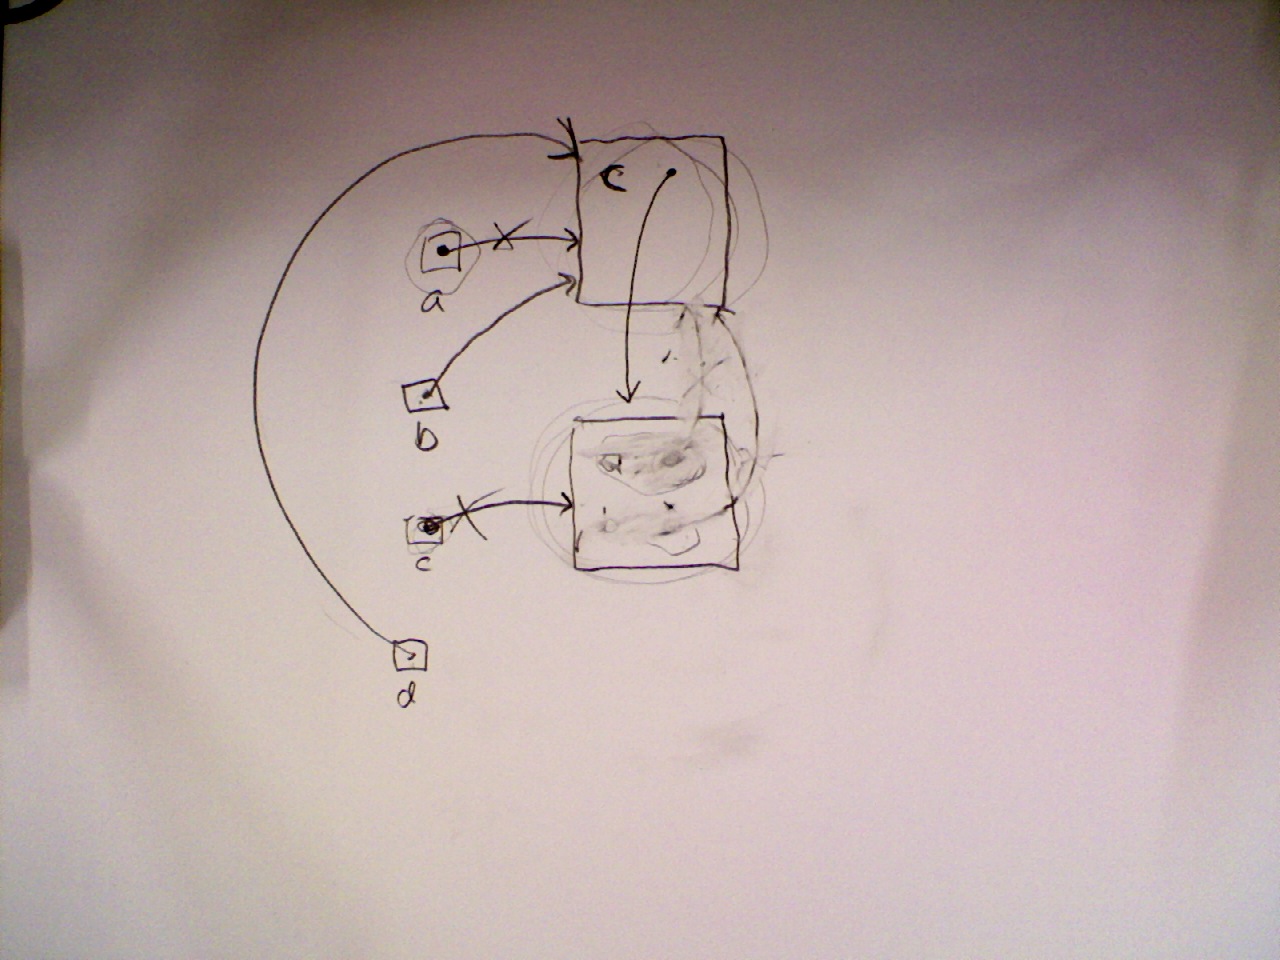 c
a
b
c
d